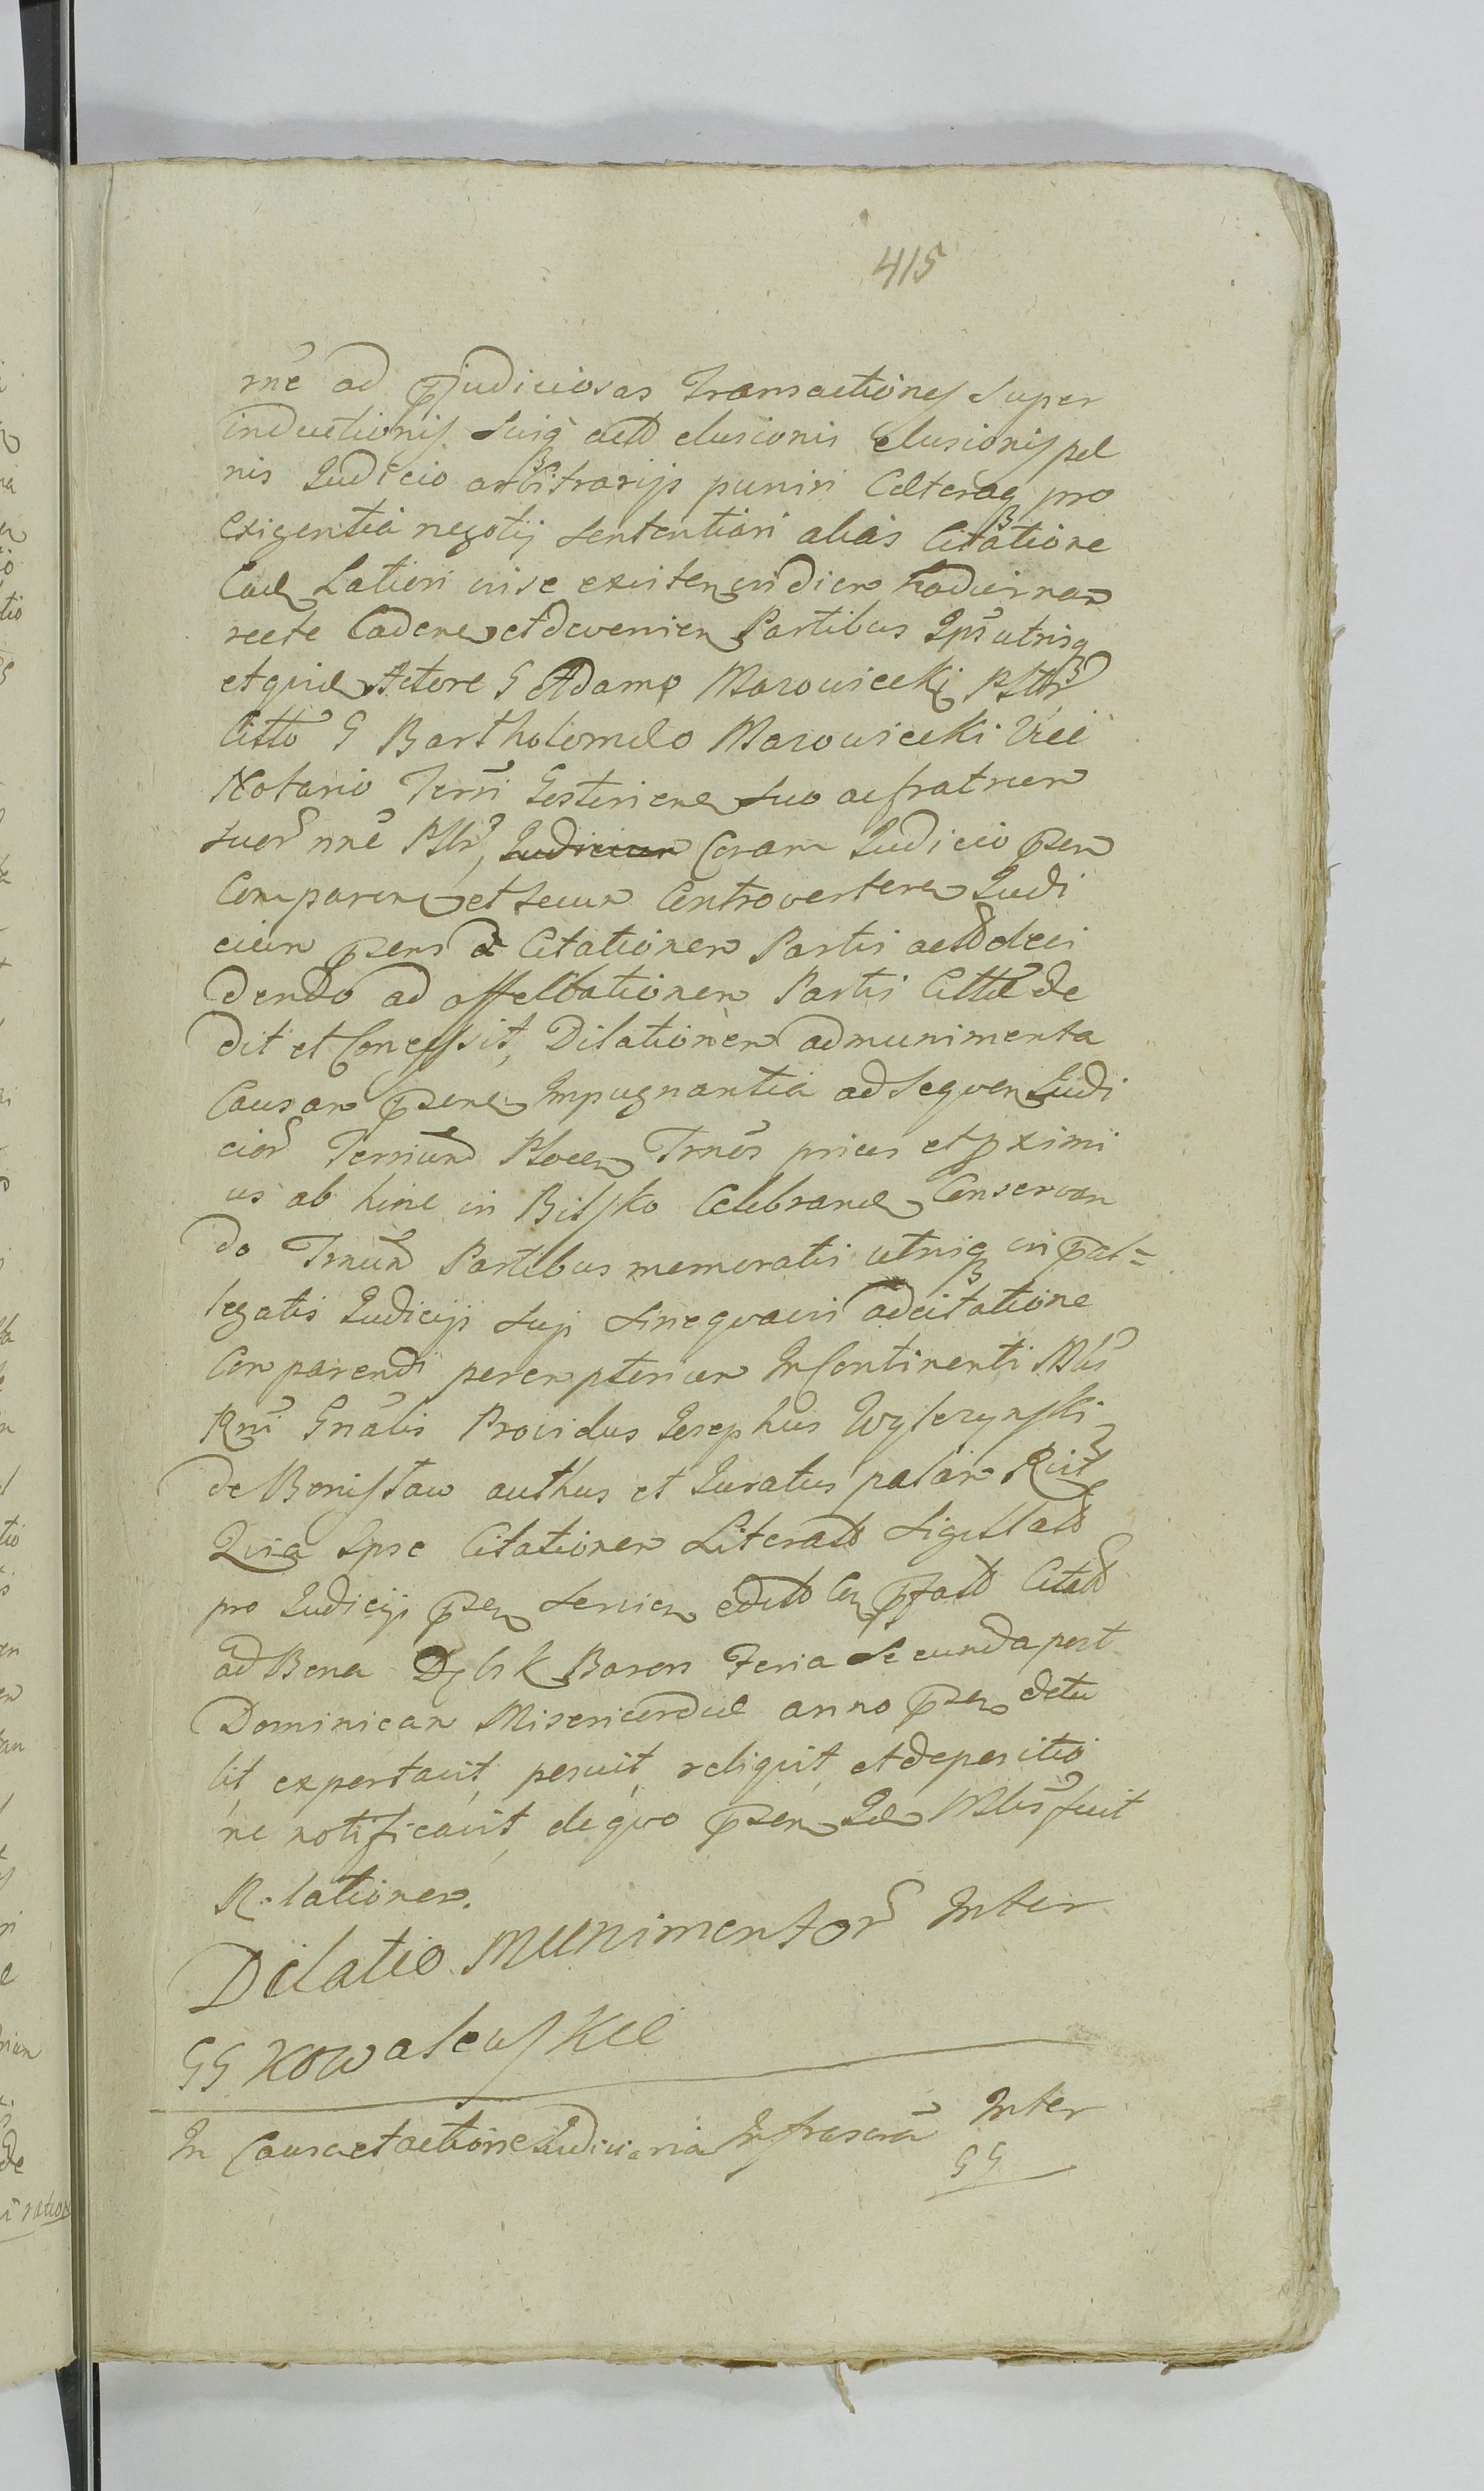 415
rnē ad pjudiciosas Transactiones Super
inductionis Suiq actō elusionis elusionis pæ
nis Judicio arbitrarijs puniri Cæteraq pro
exigentia negotij Sententiari alias Citatione
Ead Latiori in se existen in diem hodiernam
recte Caden et devenien Partibus Ips utrisq
etquid Actore G Adamo Marowiecki
Citto G Bartholomeo Marowiecki Vice
Notario Terri Gostinien suo ac fratrum
suor nnē Coram Judicio psen
Comparen et secum Controverten Judi
cium psens Citationem Partis actō deci
dendo ad affectationem Partis Cittæ de
dit et Concessit, Dilationem ad munimenta
Causam psen Impugnantia ad Sequen Judi
cior Terrium Plocen Trnos prius et pximi
us ab hinc in Bielsko Celebrand Conservan
do Trnum Partibus memoratis utrisq in præal=
legatis Judicijs Suis Sinequavis adcitatione
Comparendi peremptorium In Continenti Mlis
Rni Gnālis Providus Josephus
de Bonislaw authus et Juratus palam Rcvit
Quia Ipse Citationem Literatō Sigillatō
pro Judicijs psen Servien editō pfatō Citatō
ad Bona Feria Secunda post
Dominicam Misericordiæ anno psen detu
lit, exportavit, posuit, reliquit, et depositio
ne notificavit, de quo psen Mlis fecit
Relationem.
Dilatio Munimentor Inter
GG Kowalewskie
In Causa et actione Judiciaria Infrascrā Inter
GG